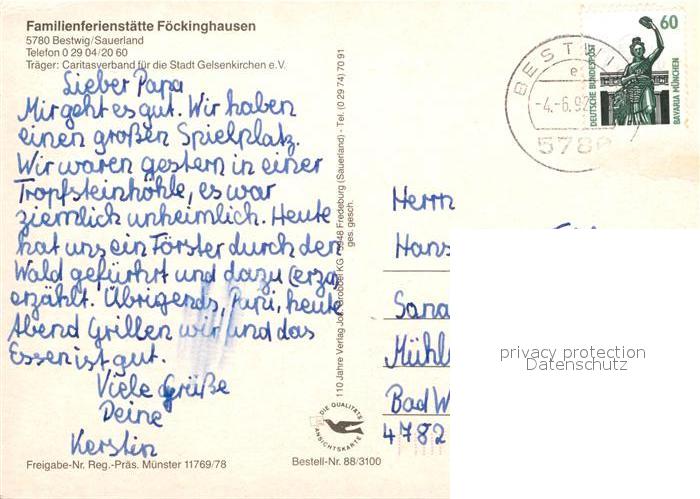 Familienferienstätte Föckinghausen
5780 Bestwig/Sauerland
Telefon 0 29 04/20 60
Träger: Caritasverband für die Stadt Gelsenkirchen e.V.
Lieber Papa
Mir geht es gut. Wir haben
einen großen Spielplatz.
Wir waren gestern in einer
Tropfsteinhöhle, es war
ziemlich unheimlich. Heute
hat uns ein Förster durch den
Wald geführt und dazu (erzä
erzählt. Übrigends, Papi, heute
Abend Grillen wir und das
Essen ist gut.
Viele Grüße
Deine
Kerstin
Freigabe-Nr. Reg.-Präs. Münster 11769/78
Bestell-Nr. 88/3100
110 Jahre Verlag Jos. Grobbel KG · 5948 Fredeburg (Sauerland) - Tel. (0 29 74) 70 91
ges. gesch.
DIE QUALITÄTS
ANSICHTSKARTE
BESTWI
e
-4.-6.92
578
60
DEUTSCHE BUNDESPOST
BAVARIA MÜNCHEN
Herrn
Hans
Sana
Mühl
Bad W
4782
privacy protection
Datenschutz